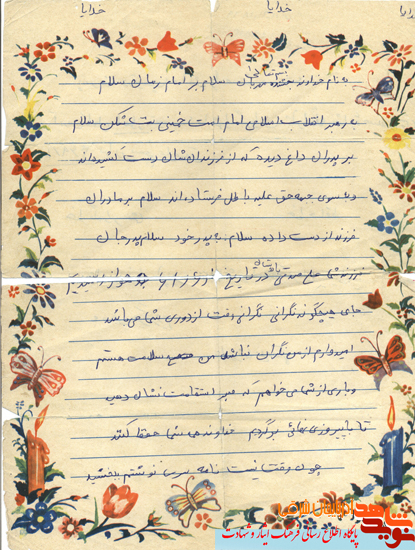 خدایا خدایا
بسم تعالی
به نام خداوند بخشنده مهربان سلام بر امام زمان سلام
به رهبر انقلاب اسلامی امام امت خمینی بت شکن سلام
بر پدران داغ دیده که از فرزندان شان دست کشیده‌اند
و به سوی جبهه حق علیه باطل فرستاده‌اند سلام بر مادران
فرزند از دست داده سلام بر پدر خود سلام پدر جان
فرزند شما در تاریخ به اهواز رسیدیم
جای هیچگونه نگرانی نگرانی نیست از دوری شما می‌باشد
امیدوارم از من نگران نباشید من صحیح سلامت هستم
و باری از شما می‌خواهم که صبر استقامت نشان دهید
تا با پیروزی نهائی برگردیم خداوند همه شما حفظ کند
چون وقت نیست نامه سرسری نوشتم ببخشید
نوید شاهد
پایگاه اطلاع رسانی فرهنگ ایثار و شهادت